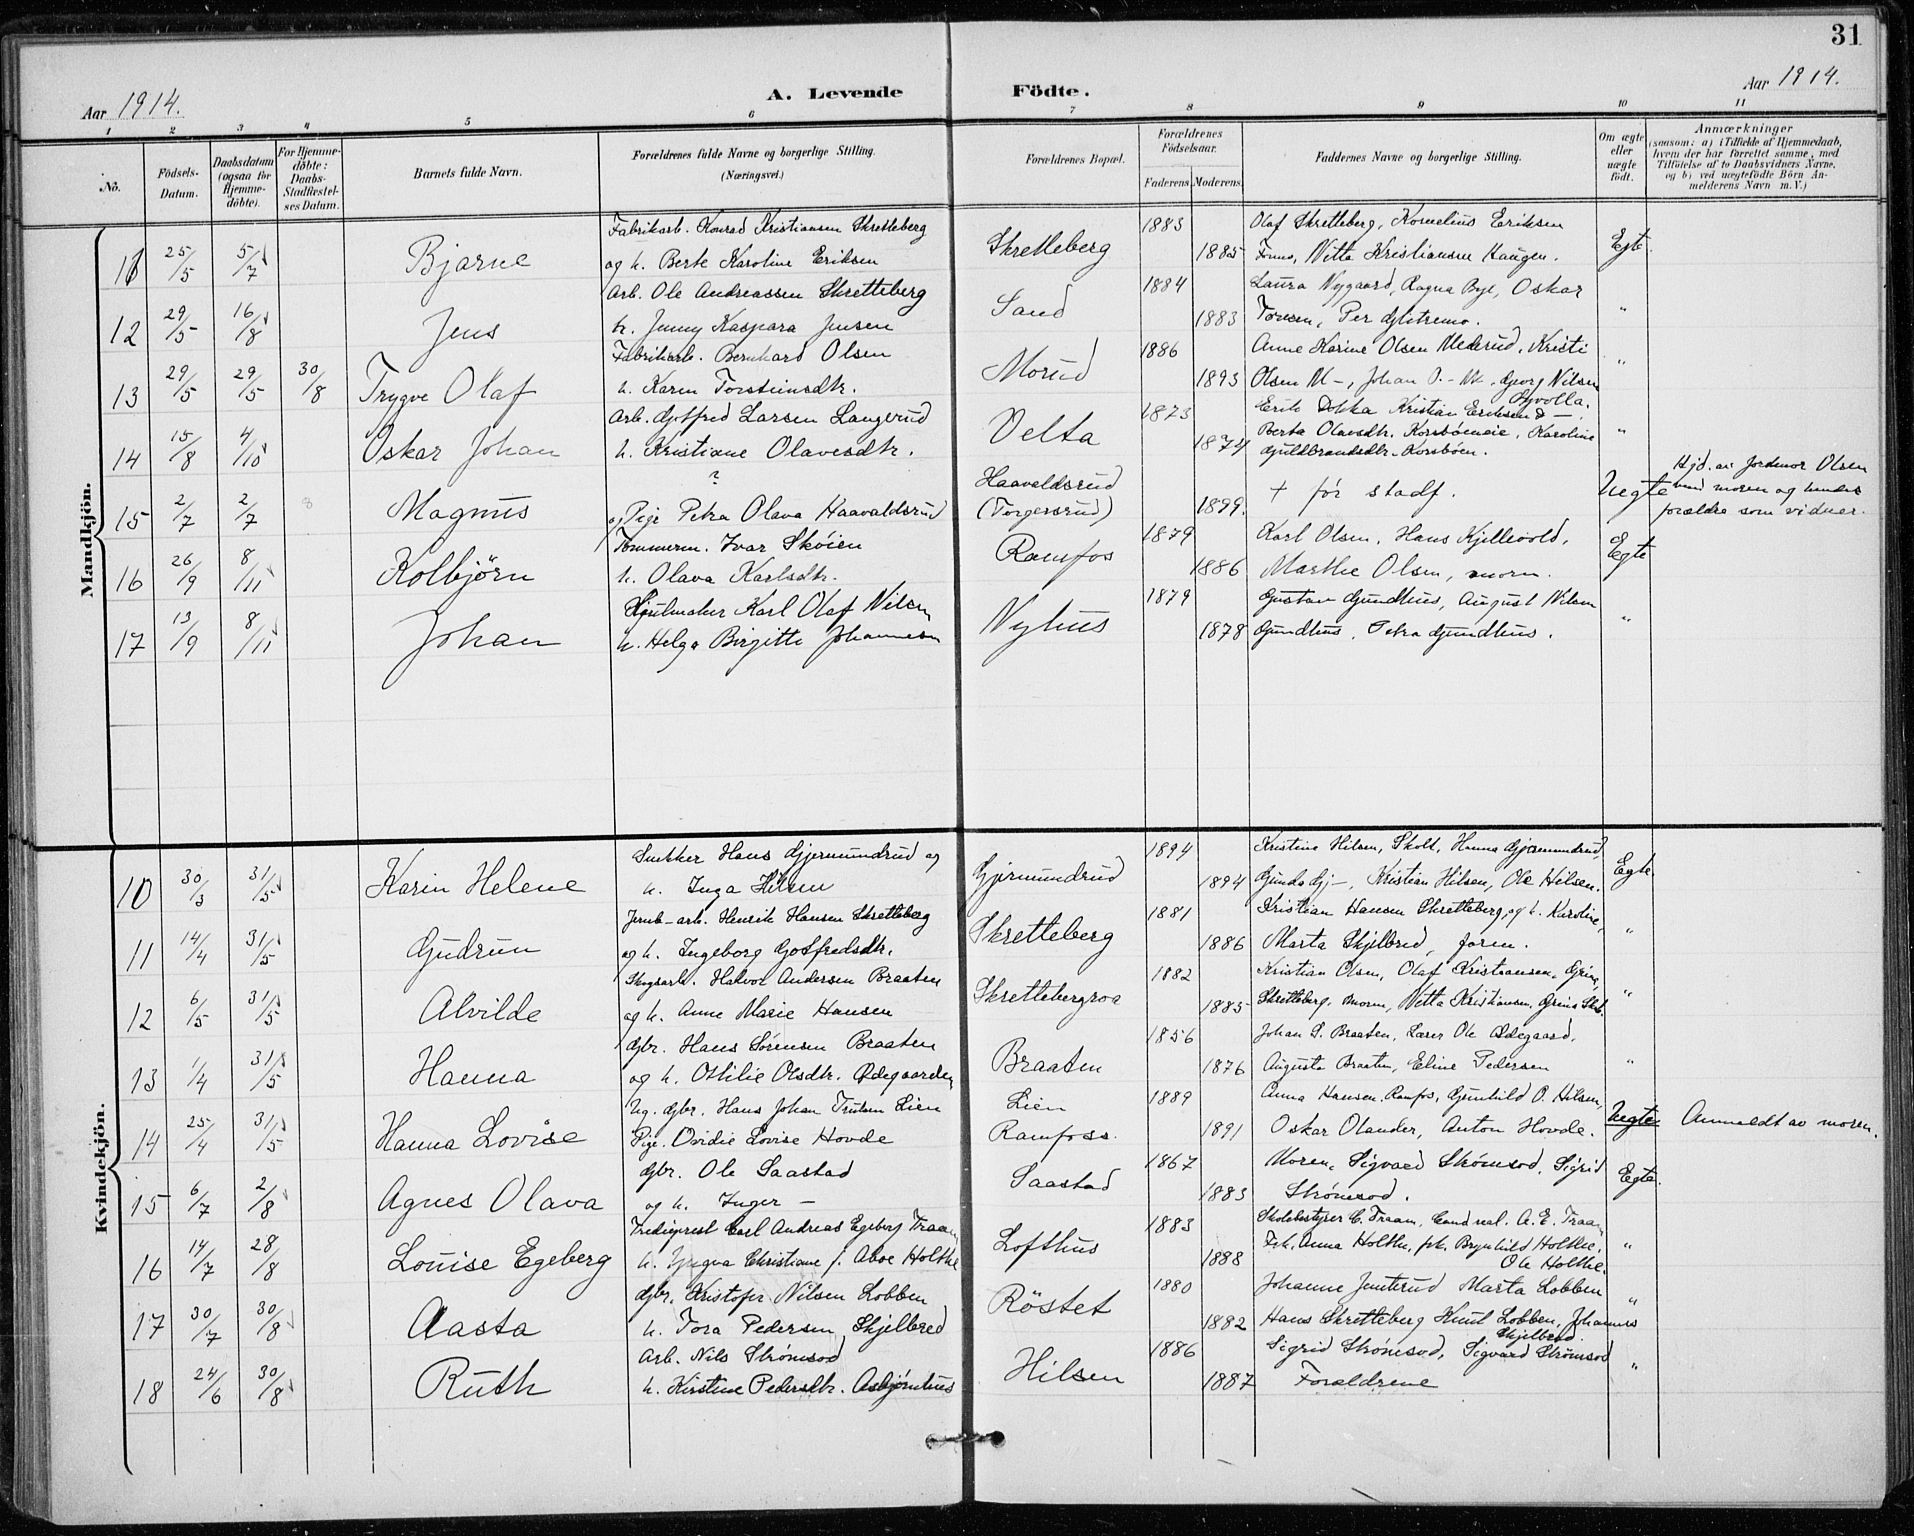 31
Aar 1914.
A. Levende Födte.
Aar 1914.
1 2 3 4 5 6 7 8 9 10 11
No.
Födsels-Datum.
Daabsdatum (ogsaa for Hjemmedöbte).
For Hjemmedöbte: Daabs-Stadfæstelses Datum.
Barnets fulde Navn.
Forældrenes fulde Navne og borgerlige Stilling. (Næringsvei.)
Forældrenes Bopæl.
Forældrenes Födselsaar.
Faderens. Moderens.
Faddernes Navne og borgerlige Stilling.
Om ægte eller uægte födt.
Anmærkninger (saasom: a) i Tilfælde af Hjemmedaab, hvem der har forrettet samme, med Tilföielse af to Daabsvidners Navne, og b) ved uægtefödte Börn Anmelderens Navn m. V.)
Mandkjön.
Fabrikarb. Konrad Kristiansen Skretteberg 1883 Olaf Skretteberg, Kornelius Eriksen
11 25/5 5/7 Bjarne og h. Berte Karoline Eriksen Skretteberg 1885 Nitta Kristiansen Haugen. Egte
Arb. Ole Andreassen Skretteberg 1884 Laura Nygaard, Ragna Bye, Oskar
12 29/5 16/8 Jens h. Jenny Kaspara Jensen Sand 1883 Toresen, Per "
Fabrikarb. Bernhard Olsen 1886 Anne Karine Olsen Mederud, Kristi
13 29/5 29/5 30/8 Trygve Olaf h. Karen Torsteinsdtr. Morud 1893 Olsen M-, Johan Georg Nilsen "
Arb. Gotfred Larsen Langerud 1873 Erik Dokka Kristian Eriksen D-.
14 15/8 4/10 Oskar Johan h. Kristiane Olavesdtr. Velta 1874 Berta Olavsdtr. Korsbøeneie, Karoline Guldbrandsdtr. Korsbøen. "
? Haavaldsrud Hjd. av Jordmor Olsen
15 2/7 2/7 Magnus og Pige Petra Olava Haavaldsrud (Torgersrud) 1899. + før stadf. Uegte med moren og hendes forældre som vidner.
Tømmerm. Ivar Skøien 1879 Karl Olsen, Hans Kjillevold,
16 26/9 8/11 Kolbjörn h. Olava Karlsdtr. Ramfos 1886 Marthe Olsen, moren. Egte
Hjulmaker Karl Olaf Nilsen 1879 Gustav Gundhus, August Nilsen
17 13/9 8/11 Johan h. Helga Birgitte Johannesen Nyhus 1878 Gundhus, Petra Gundhus. "
Kvindekjön.
Snekker Hans Gjermundrud og 1894 Kristine Hilsen, Skolt, Hanna Gjermundrud,
10 30/3 31/5 Karin Helene h. Inga Hilsen Gjermundrud 1894 Gunda Gj-, Kristian Hilsen, Ole Hilsen. Egte
Jernb-arb. Henrik Hansen Skretteberg 1881 Kristian Hansen Skretteberg, og h. Karoline,
11 14/4 31/5 Gudrun og h. Ingeborg Gotfredsdtr. Skretteberg 1886 Marta Skjelbred, faren. "
Skogsarb. Halvor Andersen Braaten 1882 Kristian Olsen, Olaf Kristiansen,
12 6/5 31/5 Alvilde og h. Anne Marie Hansen Skrettebergroa 1883 Skretteberg, moren, Nitta Kristiansen, "
Gbr. Hans Sørensen Braaten 1856 Johan S. Braaten, Lærer Ole Ødegaard,
13 1/4 31/5 Hanna og h. Othilie Olsdtr. Ødegaarden Braaten 1876 Augusta Braaten, Eline Pedersen "
Ug. gbr. Hans Johan Trulsen Lien Lien 1889 Anna Hansen Ramfos, Gunhild O. Hilsen,
14 25/4 31/5 Hanna Lovise Pige Ovidie Lovise Hovde Ramfoss. 1891 Oskar Olander, Anton Hovde. Uegte Anmeldt av moren.
Gbr. Ole Saastad 1867 Moren, Sigvard Strømsod, Sigrid
15 6/7 2/8 Agnes Olava og h. Inger - Saastad 1883 Strømsod. Egte
Predigerest Carl Andreas Egeberg Traaen 1883 Skolebestyrer C. Traaen, Cand real. A. E. Traaen
16 14/7 28/8 Louise Egeberg h. Yngva Christiane f. Aboe Holthe Lofthus 1888 Frk. Anna Holthe, frk. Brynhild Holthe, Ole Holthe. "
Gbr. Kristofer Nilsen Lobben 1880 Johanne Jenserud Marta Lobben
17 30/7 30/8 Aasta h. Tora Pedersen Skjelbred Röstet 1882 Hans Skretteberg Knut Lobben, Johannes Skjelbred. "
Arb. Nils Strømsod 1886 Sigrid Strømsod, Sigvard Strømsod
18 24/6 30/8 Ruth h. Kirstine Pedersdtr. Asbjørnhus Hilsen 1887 Forældrene "